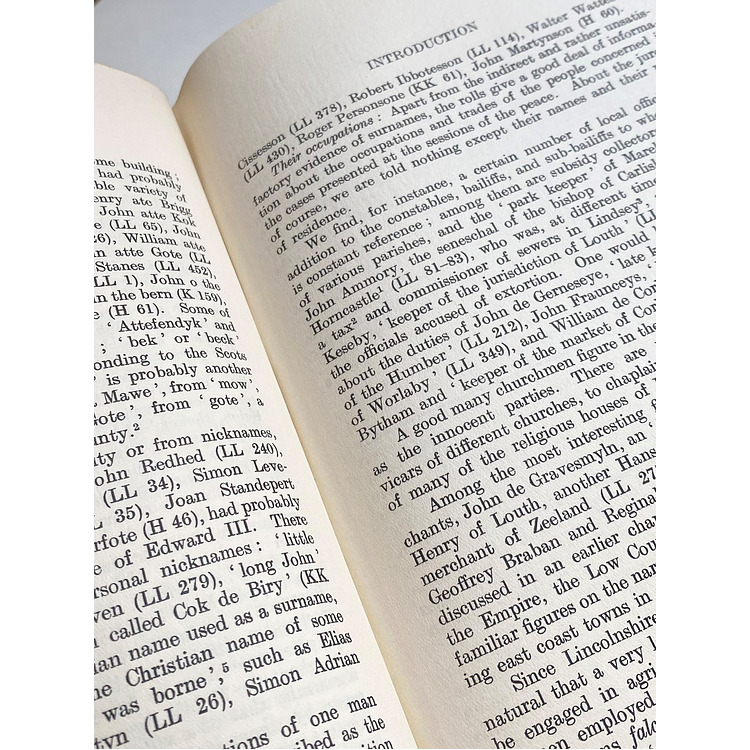 me building;
had probably
ble variety of
enry ate Brigg
John atte Kok
e (LL 65), John
26), William atte
n atte Gote (LL
Stanes (LL 452),
LL 1), John o the
in the bern (K 159),
e (H 61). Some of
' Attefendyk' and
, 'bek' or 'beck'
ponding to the Scots
' is probably another
Mawe', from 'mow',
Gote', from 'gote', a
nty.²
ty or from nicknames,
ohn Redhed (LL 240),
(LL 34), Simon Leve-
35), Joan Standepert
rfote (H 46), had probably
e of Edward III. There
ersonal nicknames: 'little
ven (LL 279), 'long John'
called Cok de Biry' (KK
an name used as a surname,
he Christian name of some
was borne',⁵ such as Elias
tyn (LL 26), Simon Adrian
ations of one man
ribed as the
ition
INTRODUCTION
Cissesson (LL 378), Robert Ibbotesson (LL 114), Walter
(LL 430), Roger Personsone (KK 61), John Martynson (H 60).
Their occupations: Apart from the indirect and rather unsatis-
factory evidence of surnames, the rolls give a good deal of informa-
tion about the occupations and trades of the people concerned
the cases presented at the sessions of the peace. About the
of course, we are told nothing except their names and their
of residence.
We find, for instance, a certain number of local
addition to the constables, bailiffs, and sub-bailiffs to
is constant reference; among them are subsidy collectors
of various parishes, and the 'park keeper' of
John Ammory, the seneschal of the bishop of
Horncastle' (LL 81–83), who was, at different
a tax² and commissioner of sewers in Lindsey³,
Keseby, 'keeper of the jurisdiction of Louth'
the officials accused of extortion. One would
about the duties of John de Gerneseye, 'late
of the Humber' (LL 212), John Fraunceys,
of Worlaby' (LL 349), and William de
Bytham and 'keeper of the market of
A good many churchmen figure in the
as the innocent parties. There are
vicars of different churches, to
of many of the religious houses of
Among the most interesting
chants, John de Gravesmyln, an
Henry of Louth, another Hans
merchant of Zeeland (LL
Geoffrey Braban and
discussed in an earlier
the Empire, the Low
familiar figures on the
ing east coast towns in
Since Lincolnshire
natural that a very
be engaged in
employed